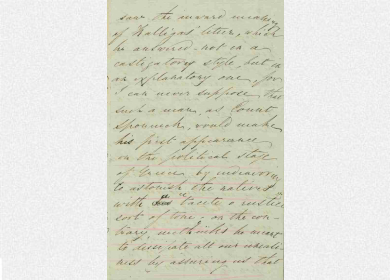 saw the inward meaning
of Halligas' letter, which
he answered - not in a
castigatory style, but in
an explanatory one, for
I can never suppose that
such a man, as Count
Sponneck, would make
his first appearance
on the political stage
of Greece by endeavoring
to astonish the natives
with a "Tacete o rustici"
sort of tone; on the con-
trary, methinks he meant
to dissipate all our uneasi-
ness by assuring us that